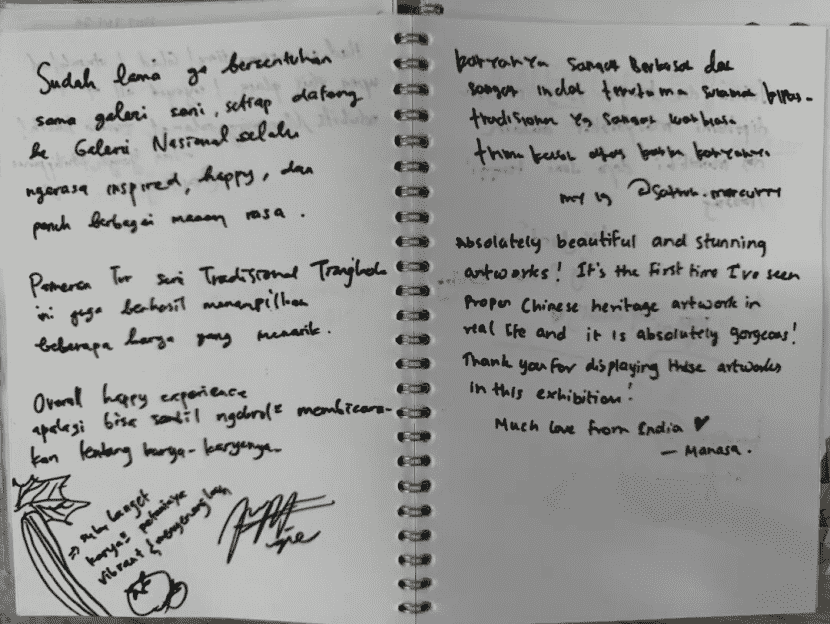 Sudah lama ga bersentuhan
sama galeri seni, setiap datang
ke Galeri Nasional selalu
ngerasa inspired, happy, dan
penuh berbagai macam rasa.
Pameran Tur Seni Tradisional Tiongkok
ini juga berhasil menampilkan
beberapa karya yang menarik.
Overall happy experience
apalagi bisa sambil ngobrol² membicara-
kan tentang karya-karyanya.
=> suka banget
karya²
vibrant &
karyanya sangat berkesan dan
sangat indah terutama
tradisional yg sangat
trima kasih atas karya karyanya
my ig
Absolutely beautiful and stunning
artworks! It's the first time I've seen
proper Chinese heritage artwork in
real life and it is absolutely gorgeous!
Thank you for displaying these artworks
in this exhibition!
Much love from India ♥
— Manasa.